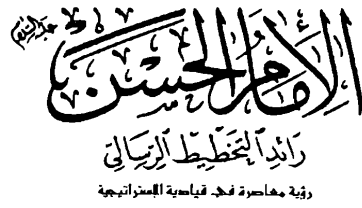 الإمام الحسن عليه السلام
رائد التخطيط الرسالي
رؤية معاصرة في قيادية الإستراتيجية